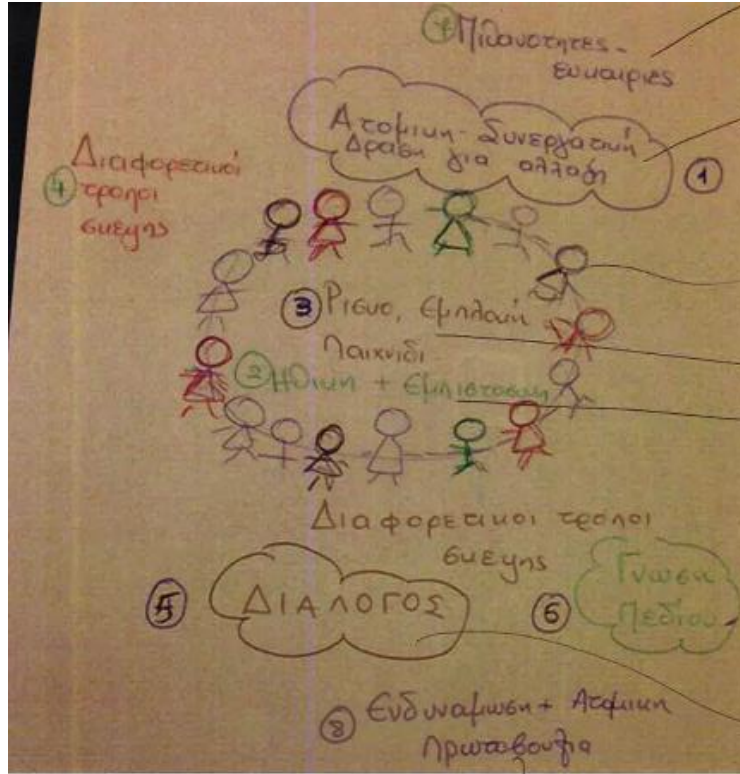 7 Πιθανοτητες -
ευκαιριες
Ατομικη - Συνεργατική
Δραση για αλλαγή
1
Διαφορετικοί
4 τροποι
σκεψης
3 Ρισκο, εμπλοκή
Παιχνιδι
2 Ηθικη + Εμπιστοσυνη
Διαφορετικοι τροποι
σκεψης
5 ΔΙΑΛΟΓΟΣ
6 Γνωση
Πεδιου
8 Ενδυναμωση + Ατομικη
πρωτοβουλια